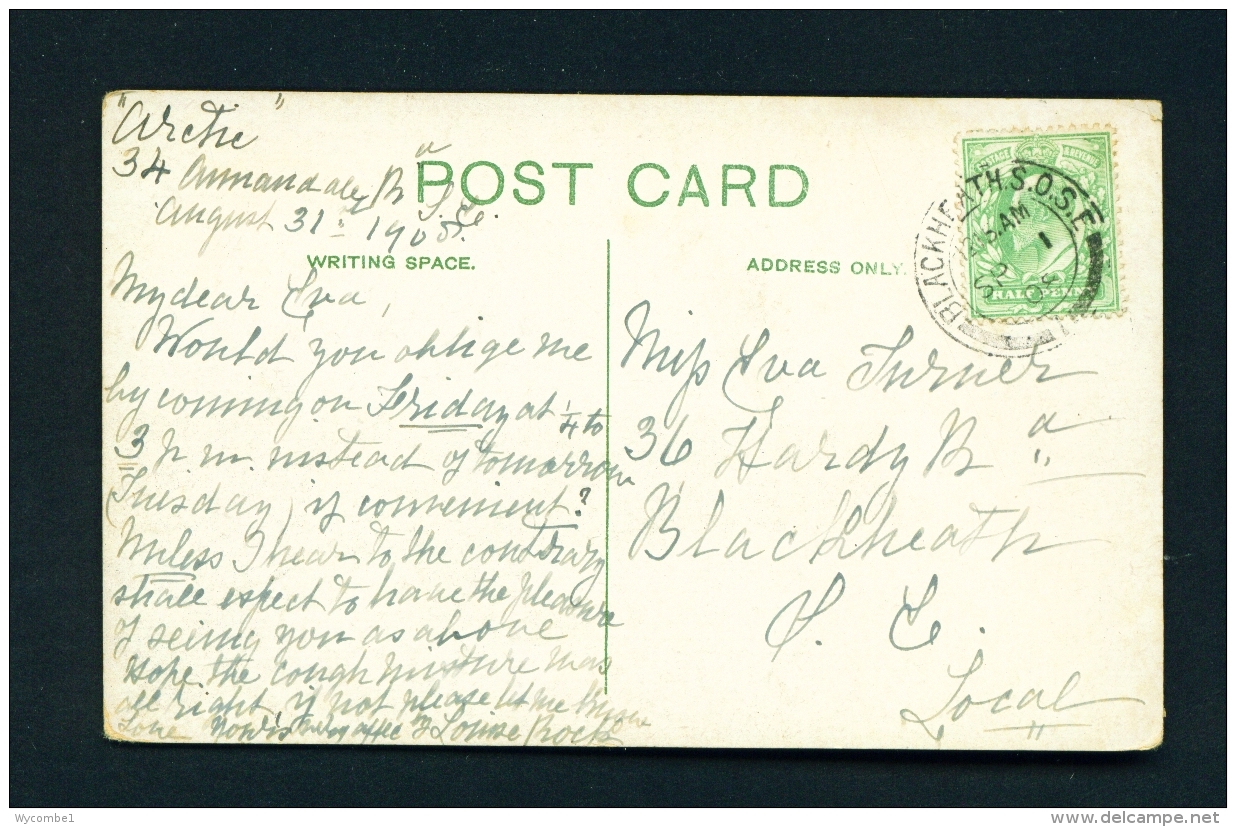 "Arctic"
34 Annandale Rd
S.E.
August 31st 1908
POST CARD
WRITING SPACE.
ADDRESS ONLY.
My dear Eva,
Would you oblige me
by coming on Friday at 1/4 to
3 p.m. instead of tomorrow
(Tuesday) if convenient?
Unless I hear to the contrary
shall expect to have the pleasure
of seeing you as above
Hope the cough mixture was
all right if not please let me know
Love Yours Louise Rock
POSTAGE & REVENUE
HALF PENNY
BLACKHEATH S.O.S.E.
12.15 AM
SP 1
08
Miss Eva Turner
36 Hardy Rd
Blackheath
S. E.
Local
Wycombe1
www.delcampe.net